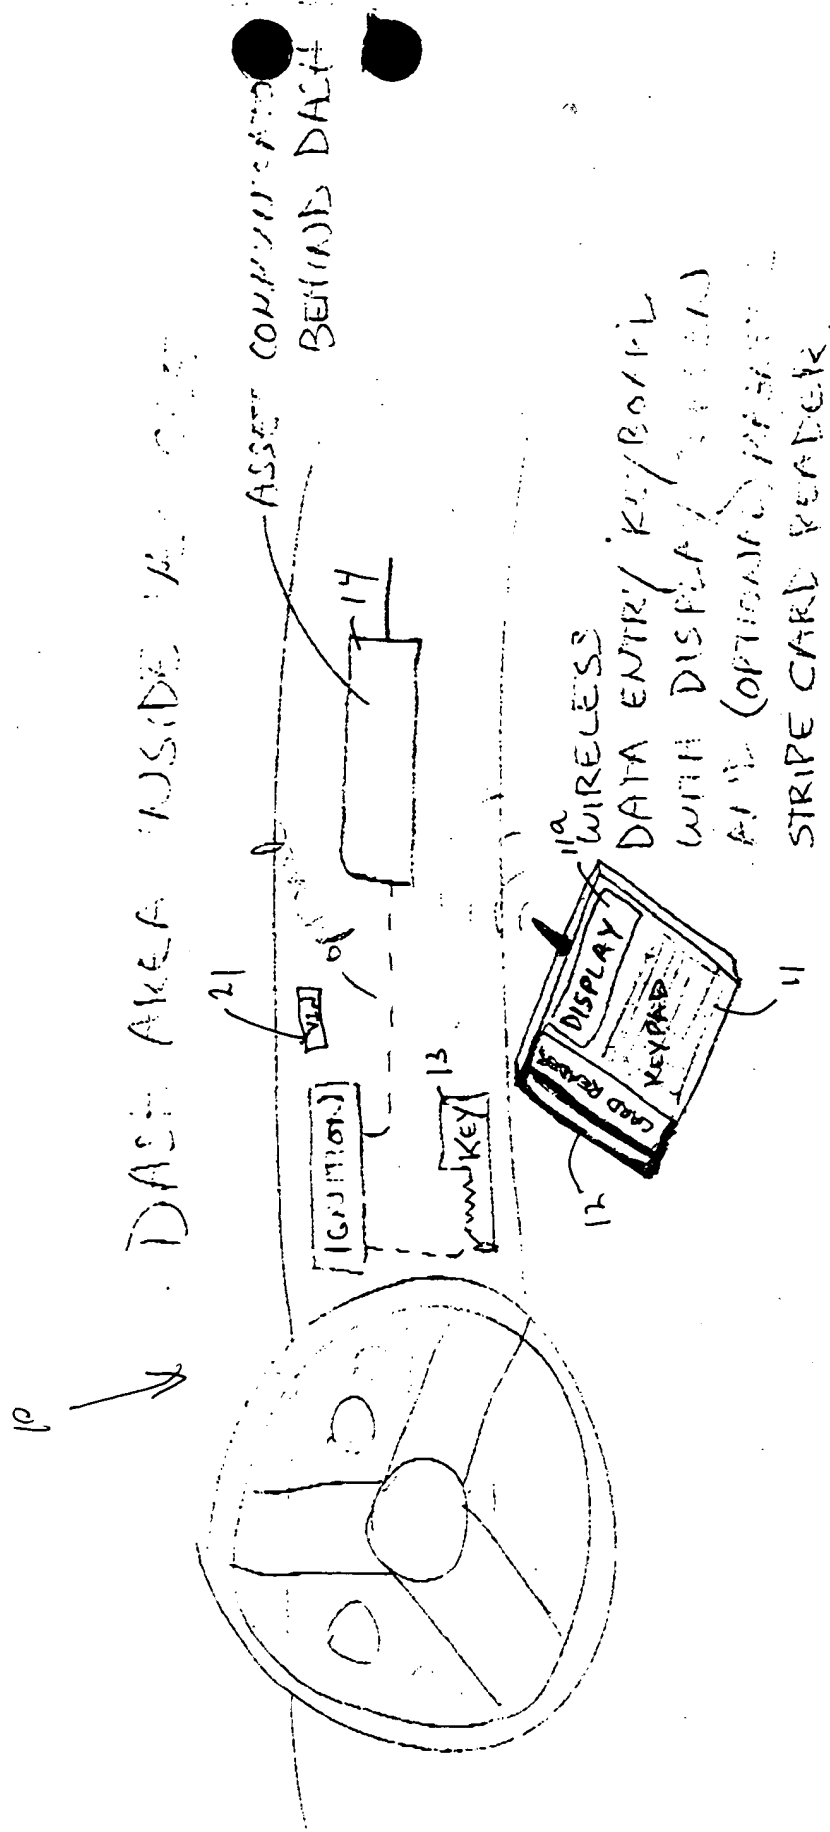 DASH AREA INSIDE
10
ASSET
BEHIND DASH
21
VIN
IGNITION
14
13
KEY
11a
WIRELESS
DATA ENTRY KEYBOARD
WITH DISPLAY
STRIPE CARD READER
DISPLAY
KEYPAD
CARD READER
12
11